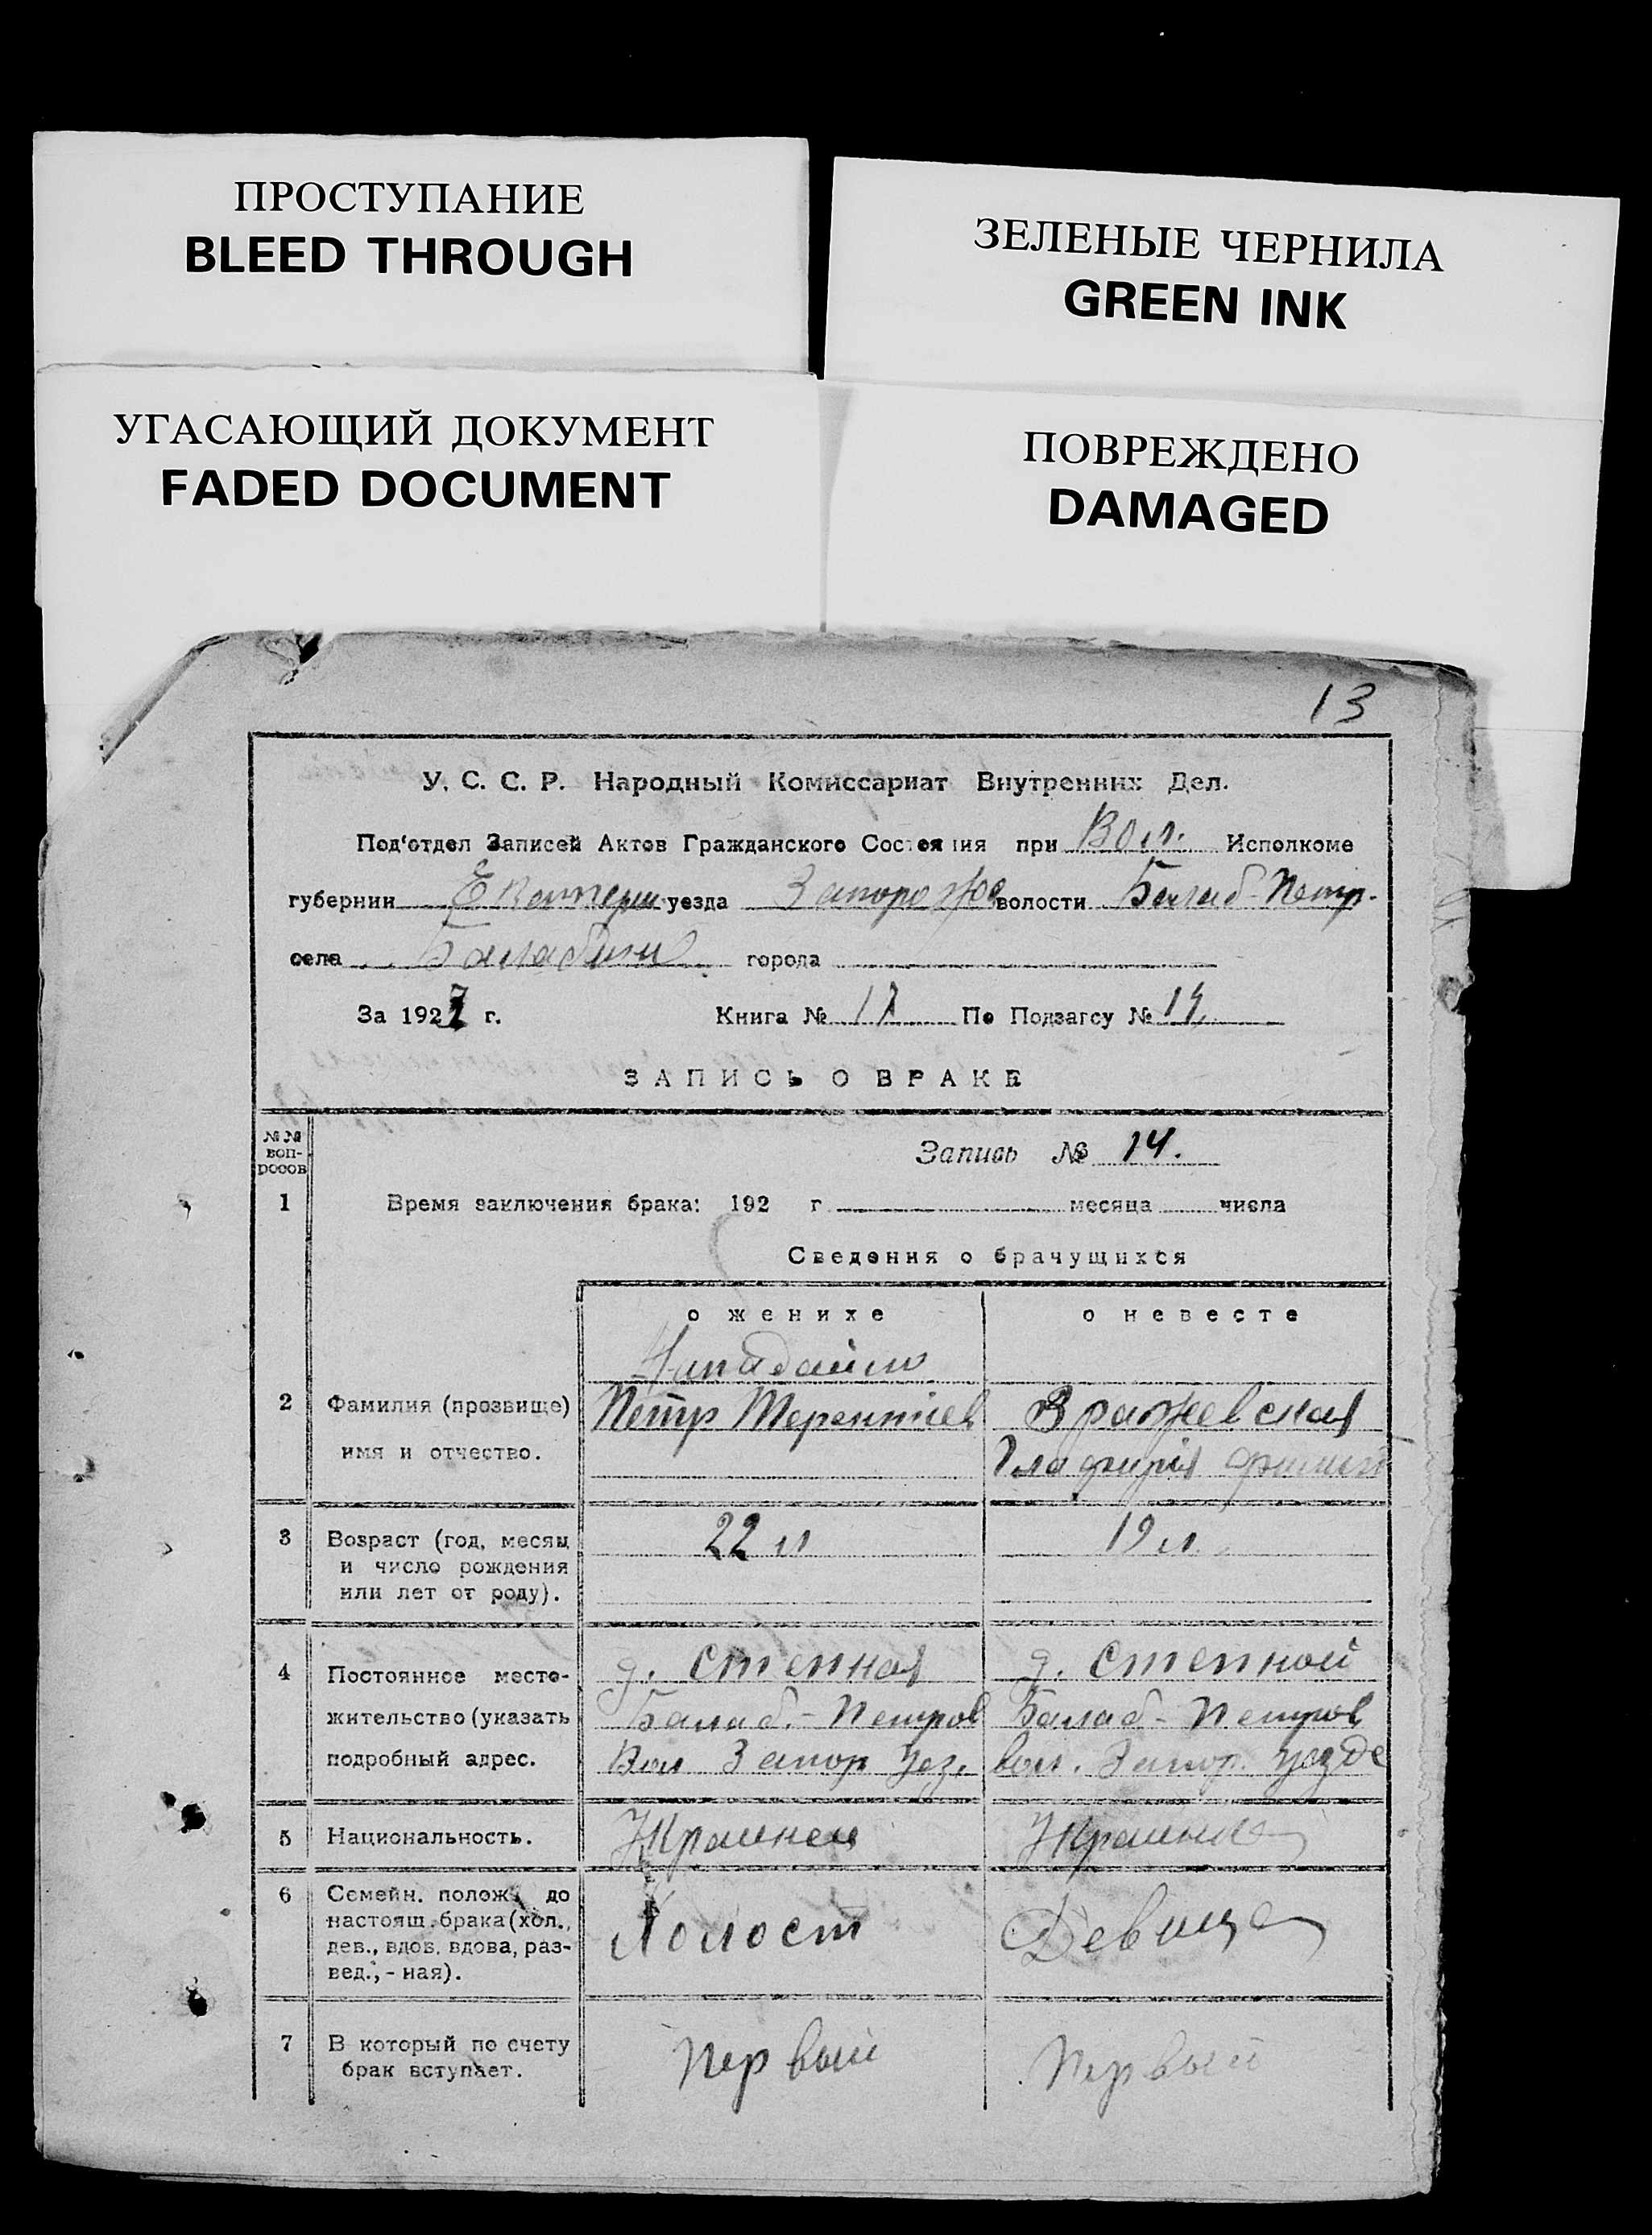 ПРОСТУПАНИЕ
BLEED THROUGH
ЗЕЛЕНЫЕ ЧЕРНИЛА
GREEN INK
УГАСАЮЩИЙ ДОКУМЕНТ
FADED DOCUMENT
ПОВРЕЖДЕНО
DAMAGED
13
У. С. С. Р. Народный Комиссариат Внутренних Дел.
Под'отдел Записей Актов Гражданского Состояния при Вол. Исполкоме
губернии Екатерин уезда Запорожс волости Балаб-Петр.
села Балабин города
За 192 г. Книга № По Подзагсу № 14
ЗАПИСЬ О БРАКЕ
№№ воп-росов
Запись № 14.
1 Время заключения брака: 192 г месяца числа
Сведения о брачущихся
о женихе о невесте
2 Фамилия (прозвище) Петр Терентиев Вражевская
имя и отчество. Глафирія
3 Возраст (год, месяц 22 л 19 л.
и число рождения
или лет от роду).
4 Постоянное место- д. Степная д. Степной
жительство (указать Балаб.-Петров Балаб-Петров
подробный адрес. Вол Запор Уез. вол. Запор. уезде
5 Национальность. Украинец Украинка
6 Семейн. полож. до
настоящ. брака (хол., Холост Девица
дев., вдов. вдова, раз-
вед., - ная).
7 В который по счету Первый Первый
брак вступает.